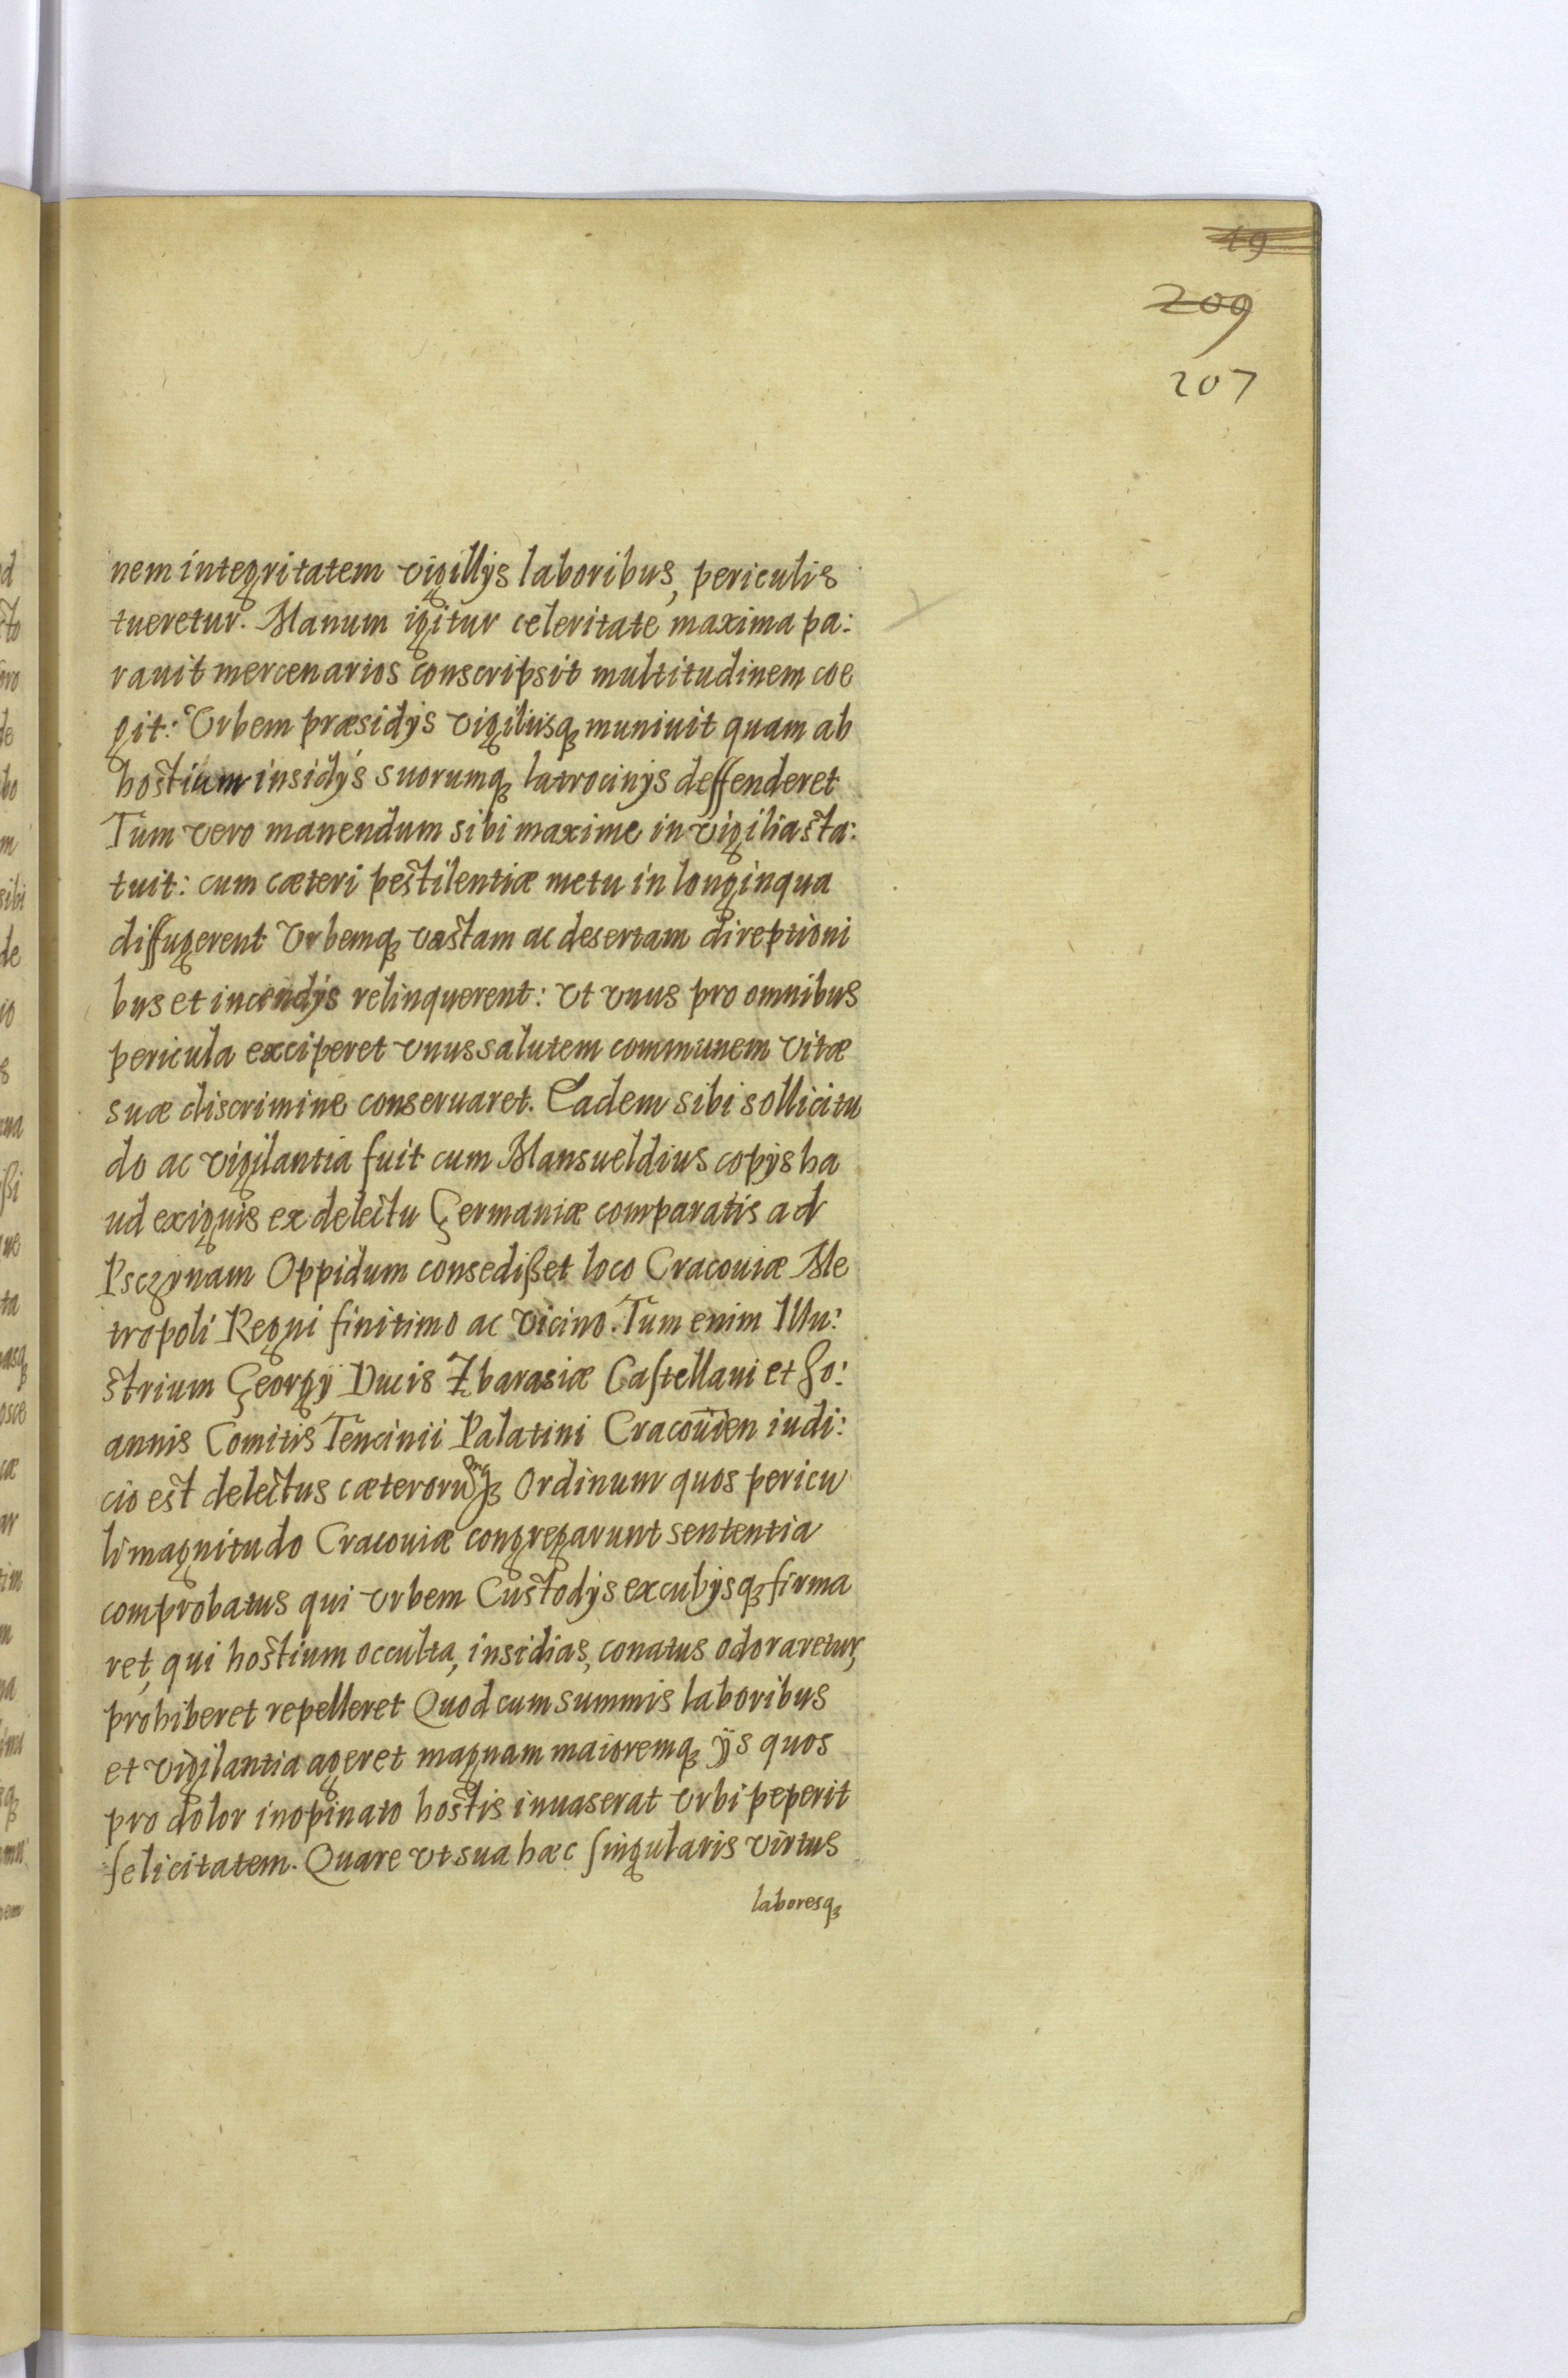 19
209
207
nem integritatem vigillijs laboribus, periculis
tueretur. Manum igitur celeritate maxima pa:
rauit mercenarios conscripsit multitudinem coe
git: Vrbem præsidijs vigiliisq muniuit quam ab
hostium insidijs suorumq latrocinijs deffenderet
Tum vero manendum sibi maxime in vigilia sta:
tuit: cum cæteri pestilentiæ metu in longinqua
diffugerent Vrbemq vastam ac desertam direptioni
bus et incendijs relinquerent: vt vnus pro omnibus
pericula exciperet vnus salutem communem vitæ
suæ discrimine conseruaret. Eadem sibi sollicitu
do ac vigilantia fuit cum Mansueldius copijs ha
ud exiguis ex delectu Germaniæ comparatis ad
Psczynam Oppidum consedißet loco Cracouiæ Me
tropoli Regni finitimo ac vicino. Tum enim Illu:
strium Georgij Ducis Zbarasiæ Castellani et Jo:
annis Comitis Tencinii Palatini Cracouien iudi:
cio est delectus cæterorumq Ordinum quos pericu
li magnitudo Cracouiæ congregarunt sententia
comprobatus qui vrbem Custodijs excubijsq firma
ret, qui hostium occulta, insidias, conatus odoraretur,
prohiberet repelleret Quod cum summis laboribus
et vigilantia ageret magnam maioremq ijs quos
pro dolor inopinato hostis inuaserat vrbi peperit
felicitatem. Quare vt sua hæc singularis virtus
laboresq